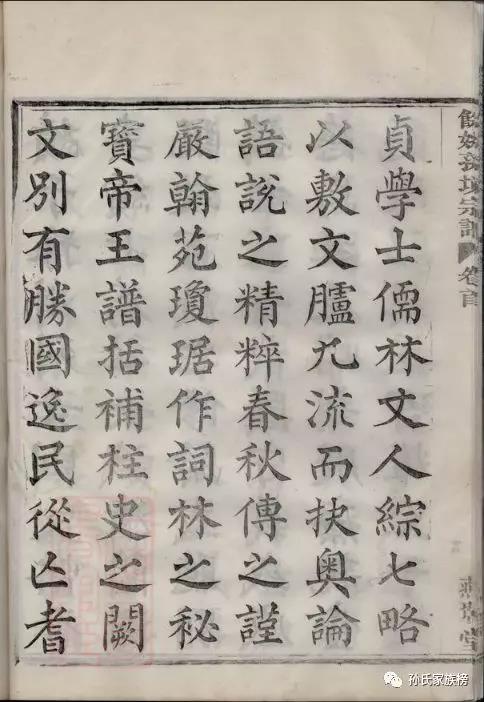 餘姚孫境宗譜 卷首
貞學士儒林文人綜七略
以敷文臚九流而抉奥論
語說之精粹春秋傳之謹
嚴翰苑瓊琚作詞林之秘
寶帝王譜括補柱史之闕
文別有勝國逸民從亾耆
孙氏家族榜